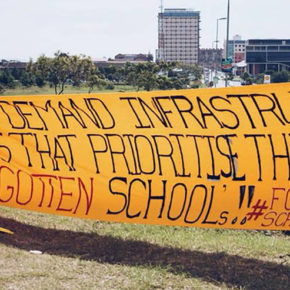 DEMAND INFRASTRU
S THAT PRIORITISE THE
GOTTEN SCHOOL'S..!! #FO
SCH